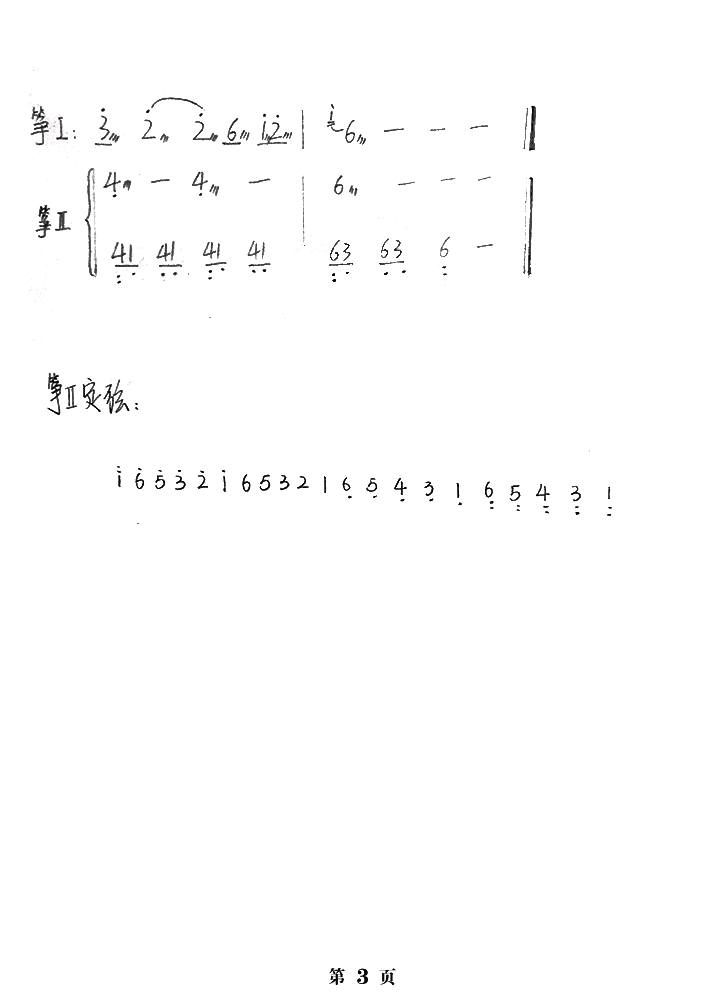 筝Ⅰ: 3̇ 2̇ 2̇ 6 1̇2̇ | 1̇ 6 — — — ‖
4̣ — 4̣ — | 6 — — —
筝Ⅱ
41 41 41 41 | 63 63 6 — ‖
筝Ⅱ定弦:
1 6 5 3 2 1 6 5 3 2 1 6 5 4 3 1 6 5 4 3 1
第 3 页